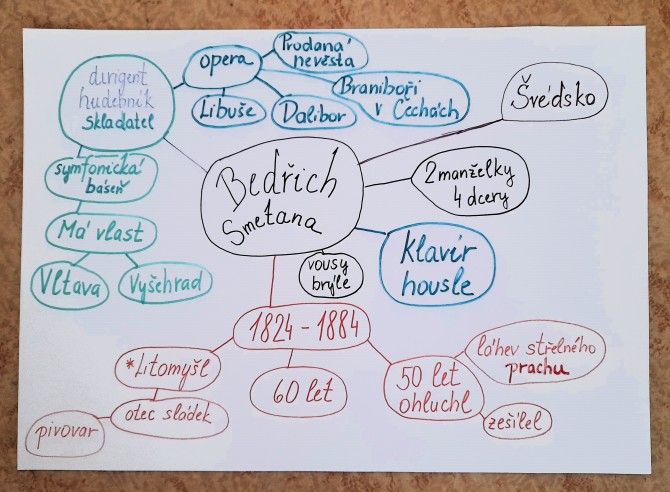 dirigent
hudebník
skladatel
opera
Prodaná
nevěsta
Libuše
Dalibor
Braniboři
v Čechách
Švédsko
symfonická
báseň
Má vlast
Vltava
Vyšehrad
Bedřich
Smetana
2 manželky
4 dcery
klavír
housle
vousy
brýle
1824 - 1884
*Litomyšl
otec sládek
pivovar
60 let
50 let
ohluchl
láhev střelného
prachu
zešílel